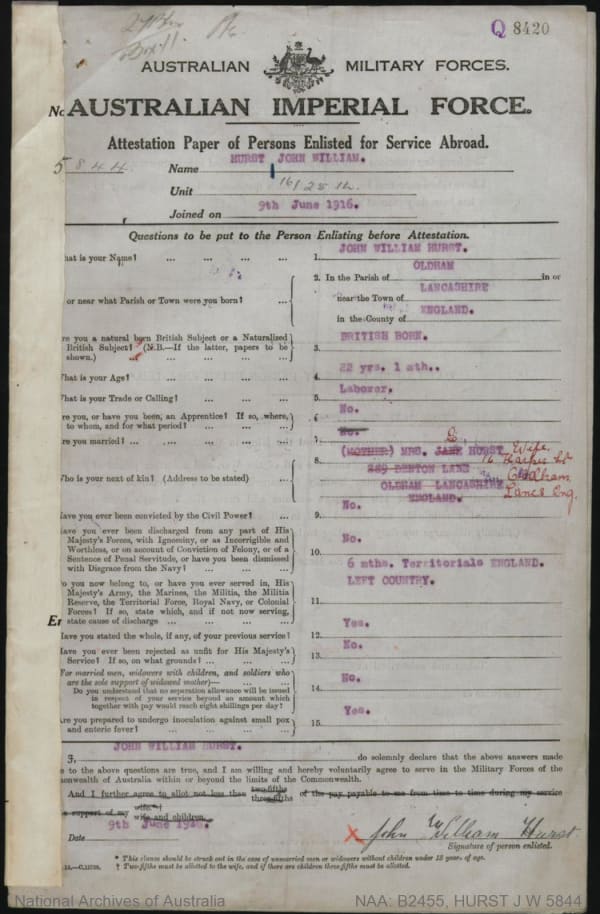 Q 8420
Box 11.
AUSTRALIAN MILITARY FORCES.
AUSTRALIAN IMPERIAL FORCE.
Attestation Paper of Persons Enlisted for Service Abroad.
No
5844.
Name HURST JOHN WILLIAM.
Unit 16/25th
Joined on 9th June 1916.
Questions to be put to the Person Enlisting before Attestation.
hat is your Name? ... ... ... ... 1. JOHN WILLIAM HURST.
or near what Parish or Town were you born? ... 2. In the Parish of OLDHAM in or
near the Town of LANCASHIRE
in the County of ENGLAND.
re you a natural born British Subject or a Naturalized
British Subject? (N.B.—If the latter, papers to be
shown.) ... ... ... ... 3. BRITISH BORN.
hat is your Age? ... ... ... ... 4. 22 yrs. 1 mth..
hat is your Trade or Calling? ... ... ... 5. Laborer.
re you, or have you been, an Apprentice? If so, where,
to whom, and for what period? ... ... ... 6. No.
re you married? ... ... ... ... 7. No.
ho is your next of kin? (Address to be stated) ... 8. (MOTHER) MRS. JANE HURST Wife
269 DENTON LANE
OLDHAM LANCASHIRE Oldham
ENGLAND. Lancs Eng.
ave you ever been convicted by the Civil Power? ... 9. No.
ave you ever been discharged from any part of His
Majesty's Forces, with Ignominy, or as Incorrigible and
Worthless, or on account of Conviction of Felony, or of a
Sentence of Penal Servitude, or have you been dismissed
with Disgrace from the Navy? ... ... ... 10. No.
o you now belong to, or have you ever served in, His
Majesty's Army, the Marines, the Militia, the Militia
Reserve, the Territorial Force, Royal Navy, or Colonial
Forces? If so, state which, and if not now serving,
state cause of discharge ... ... ... ... 11. 6 mths. Territorials ENGLAND.
LEFT COUNTRY.
En
ave you stated the whole, if any, of your previous service? 12. Yes.
ave you ever been rejected as unfit for His Majesty's
Service? If so, on what grounds? ... ... ... 13. No.
For married men, widowers with children, and soldiers who
are the sole support of widowed mother)—
Do you understand that no separation allowance will be issued
in respect of your service beyond an amount which
together with pay would reach eight shillings per day? 14. No.
re you prepared to undergo inoculation against small pox
and enteric fever? ... ... ... ... 15. Yes.
I, JOHN WILLIAM HURST. do solemnly declare that the above answers made
e to the above questions are true, and I am willing and hereby voluntarily agree to serve in the Military Forces of the
onwealth of Australia within or beyond the limits of the Commonwealth.
And I further agree to allot not less than two-fifths three-fifths of the pay payable to me from time to time during my service
e support of my wife.* wife and children.
Date 9th June 1916. X John William Hurst
Signature of person enlisted.
* This clause should be struck out in the case of unmarried men or widowers without children under 18 years of age.
† Two-fifths must be allotted to the wife, and if there are children three-fifths must be allotted.
National Archives of Australia NAA: B2455, HURST J W 5844